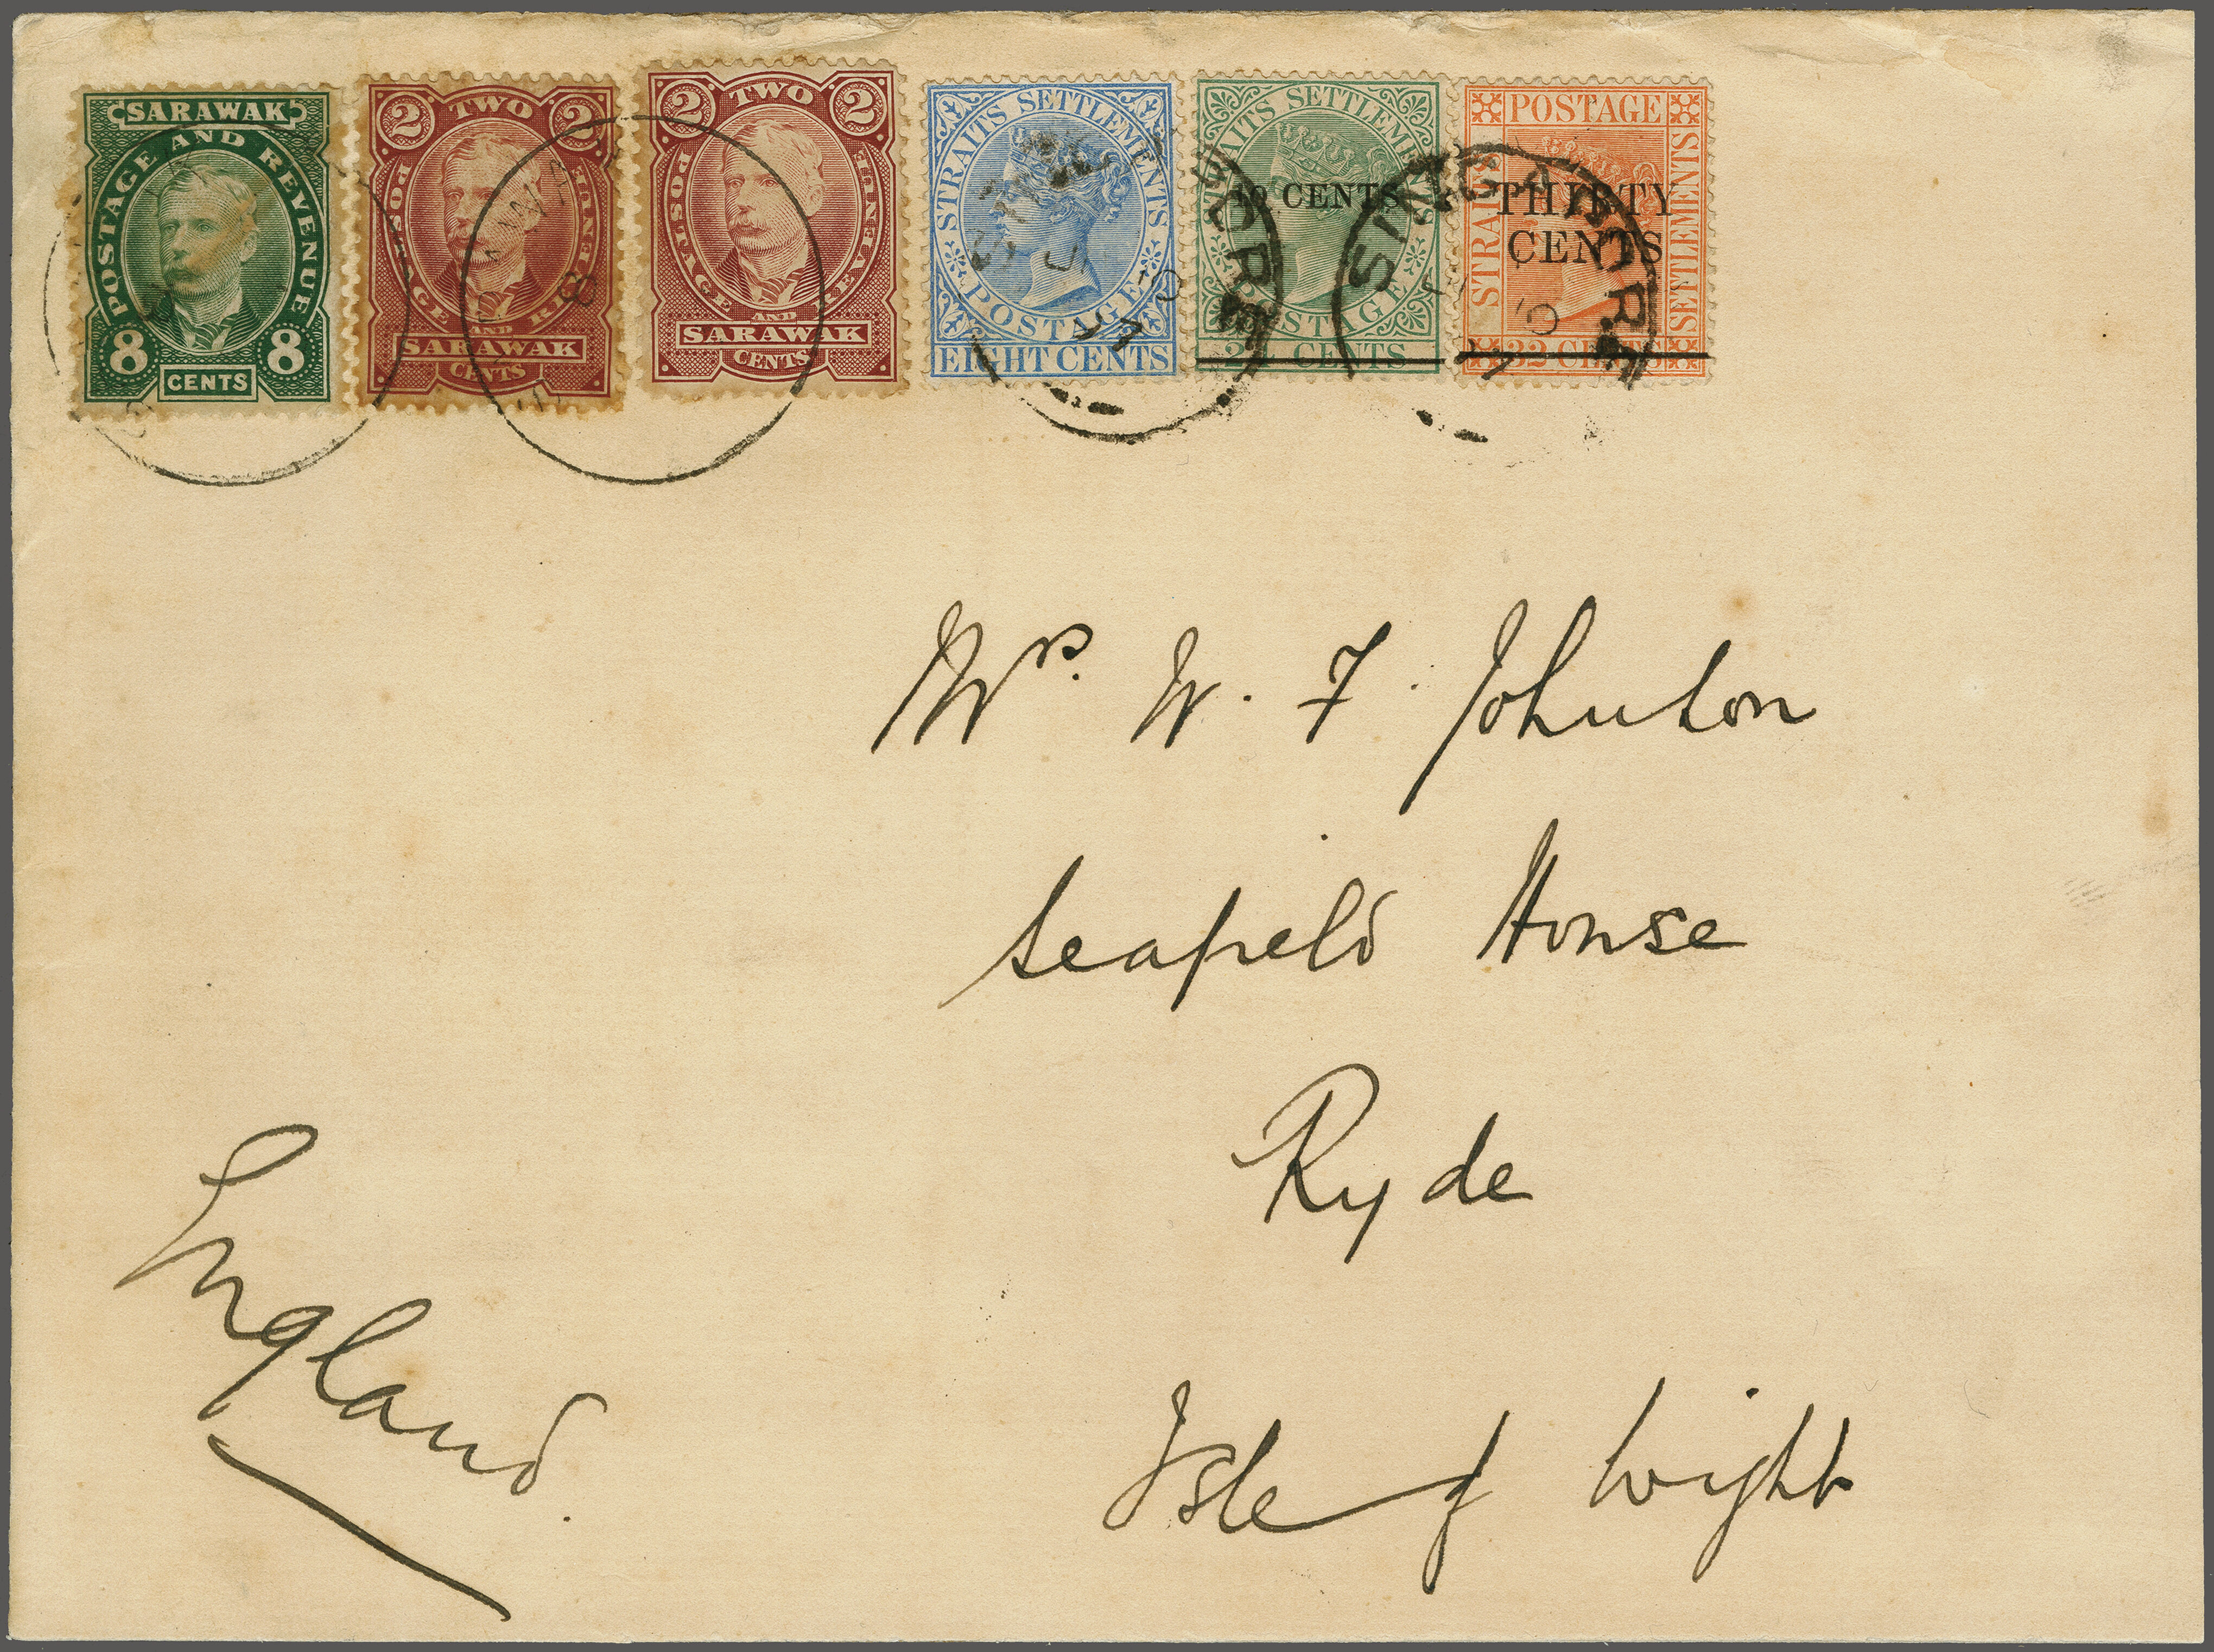 SARAWAK
POSTAGE AND REVENUE
8 8
CENTS
2 TWO 2
POSTAGE AND REVENUE
SARAWAK
CENTS
2 TWO 2
POSTAGE AND REVENUE
SARAWAK
CENTS
STRAITS SETTLEMENTS
POSTAGE
EIGHT CENTS
STRAITS SETTLEMENTS
10 CENTS
POSTAGE
CENTS
POSTAGE
STRAITS
SETTLEMENTS
THIRTY
CENTS
32 CENTS
SINGAPORE
Mrs. W. F. Johnston
Seafield House
Ryde
Isle of Wight
England.